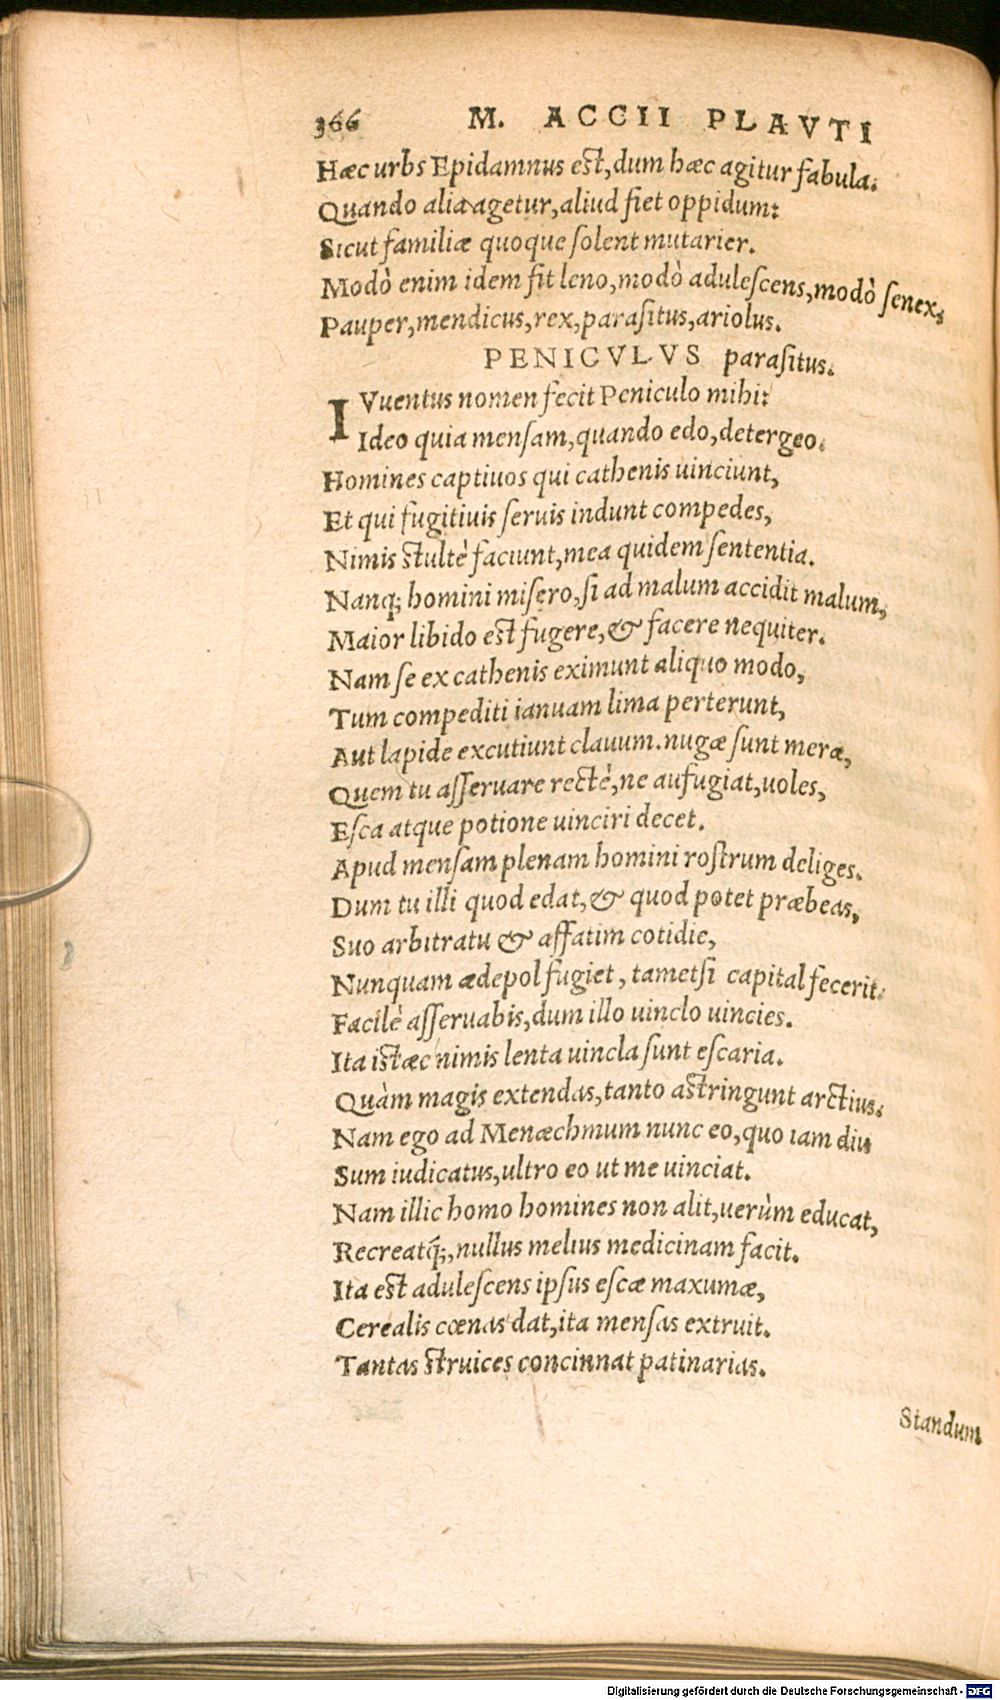 366 M. ACCII PLAVTI
Hæc urbs Epidamnus est, dum hæc agitur fabula.
Quando alia agetur, aliud fiet oppidum:
Sicut familiæ quoque ſolent mutarier.
Modò enim idem fit leno, modò aduleſcens, modò ſenex,
Pauper, mendicus, rex, paraſitus, ariolus.
PENICVLVS paraſitus.
IVuentus nomen fecit Peniculo mihi:
Ideo quia menſam, quando edo, detergeo.
Homines captiuos qui cathenis uinciunt,
Et qui fugitiuis ſeruis indunt compedes,
Nimis stultè faciunt, mea quidem ſententia.
Nanq; homini miſero, ſi ad malum accidit malum,
Maior libido est fugere, & facere nequiter.
Nam ſe ex cathenis eximunt aliquo modo,
Tum compediti ianuam lima perterunt,
Aut lapide excutiunt clauum. nugæ ſunt meræ,
Quem tu aſſeruare rectè, ne aufugiat, uoles,
Eſca atque potione uinciri decet.
Apud menſam plenam homini roſtrum deliges.
Dum tu illi quod edat, & quod potet præbeas,
Suo arbitratu & affatim cotidie,
Nunquam ædepol fugiet, tametſi capital fecerit.
Facilè aſſeruabis, dum illo uinclo uincies.
Ita istæc nimis lenta uincla ſunt eſcaria.
Quàm magis extendas, tanto astringunt arctius.
Nam ego ad Menæchmum nunc eo, quo iam diu
Sum iudicatus, ultro eo ut me uinciat.
Nam illic homo homines non alit, uerùm educat,
Recreatq́;, nullus melius medicinam facit.
Ita est aduleſcens ipſus eſcæ maxumæ,
Cerealis cœnas dat, ita menſas extruit.
Tantas struices concinnat patinarias.
Standum
Digitalisierung gefördert durch die Deutsche Forschungsgemeinschaft - DFG